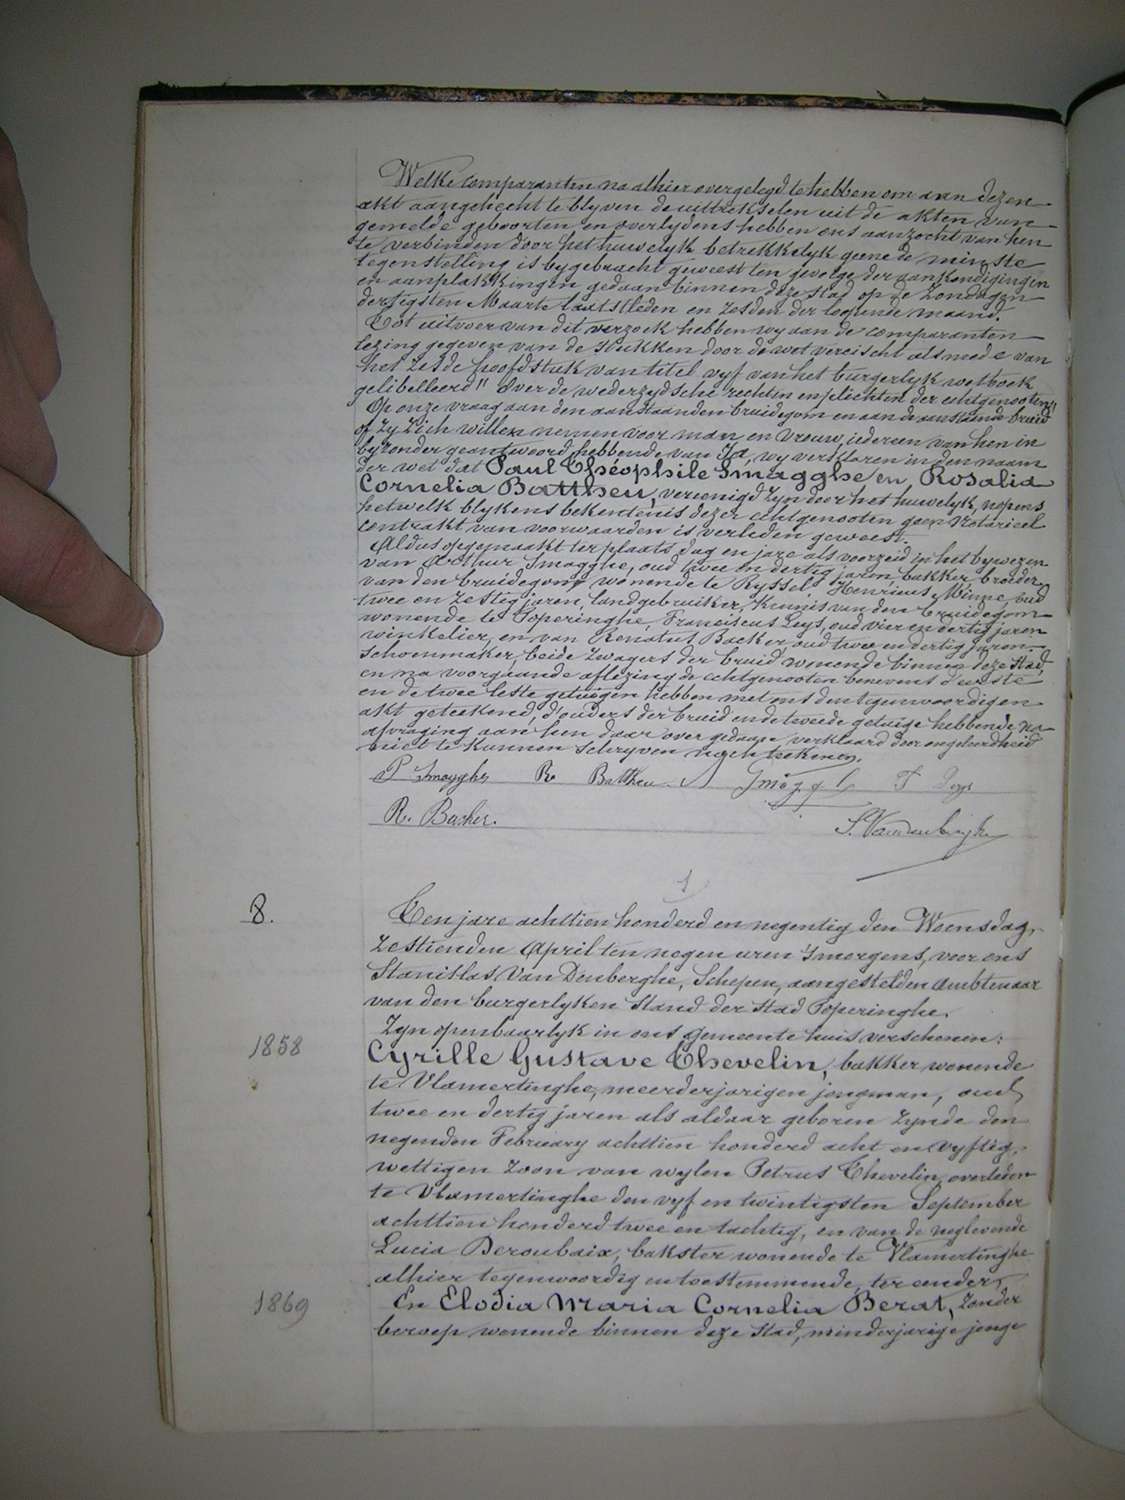 Welke comparanten na alhier overgelegd te hebben om aan dezen
akt aangehecht te blyven de uittrekselen uit de akten van
gemelde geboorten, en overlydens hebben ons aanzocht van hen
te verbinden door het huwelyk betrekkelyk geene de minste
tegenstelling is bygebracht geweest ten gevolge der aankondigingen
en aanplakkingen gedaan binnen deze stad op de Zondagen
dertigsten Maart laatstleden en zesden der loopende maand.
Tot uitvoer van dit verzoek hebben wy aan de comparanten
lezing gegeven van de stukken door de wet vereischt alsmede van
het zesde hoofdstuk van titel vyf van het burgerlyk wetboek
gelibelleerd "Over de wederzydsche rechten en plichten der echtgenooten"
Op onze vraag aan den aanstaanden bruidegom en aan de aanstaande bruid
of zy zich willen nemen voor man en vrouw, iedereen van hen in
byzonder geantwoord hebbende van Ja, wy verklaren in den naam
der wet dat Paul Théophile Smagghe en Rosalia
Cornelia Battheu, vereenigd zyn door het huwelyk, nopens
hetwelk blykens bekentenis dezer echtgenooten geen notarieel
contrakt van voorwaarden is verleden geweest.
Aldus opgemaakt ter plaats, dag en jare als voorzeid in het bywezen
van Arthur Smagghe, oud twee en dertig jaren, bakker, broeder
van den bruidegom wonende te Ryssel, Henricus Minne oud
twee en zestig jaren, landgebruiker, kennis van den bruidegom
wonende te Poperinghe, Franciscus Leys, oud vier en dertig jaren
winkelier, en van Renatus Backer, oud twee en dertig jaren
schoenmaker, beide zwagers der bruid wonende binnen deze stad,
en na voorgaande aflezing de echtgenooten benevens d'eerste
en de twee leste getuigen hebben met ons den tegenwoordigen
akt geteekend, d'ouders der bruid en de tweede getuige hebbende na
afvraging aan hen daar over gedaan verklaard door ongeleerdheid
niet te kunnen schryven noch teekenen.
P Smagghe R. Battheu A Smagghe F Leys
R. Backer. S. Vandenberghe
8.
Ten jare achttien honderd en negentig den Woensdag,
zestienden April ten negen uren 's morgens, voor ons
Stanislas Van Denberghe, Schepen, aangestelden ambtenaar
van den burgerlyken stand der stad Poperinghe.
Zyn openbaarlyk in ons gemeente huis verschenen:
1858
Cyrille Gustave Thevelin, bakker wonende
te Vlamertinghe, meerderjarigen jongman, oud
twee en dertig jaren als aldaar geboren zynde den
negenden February achttien honderd acht en vyftig,
wettigen zoon van wylen Petrus Thevelin, overleden
te Vlamertinghe den vyf en twintigsten September
achttien honderd twee en tachtig, en van de noglevende
Lucia Deroubaix, bakster wonende te Vlamertinghe
alhier tegenwoordig en toestemmende, ter eender,
1869
En Elodia Maria Cornelia Berat, zonder
beroep wonende binnen deze stad, minderjarige jonge